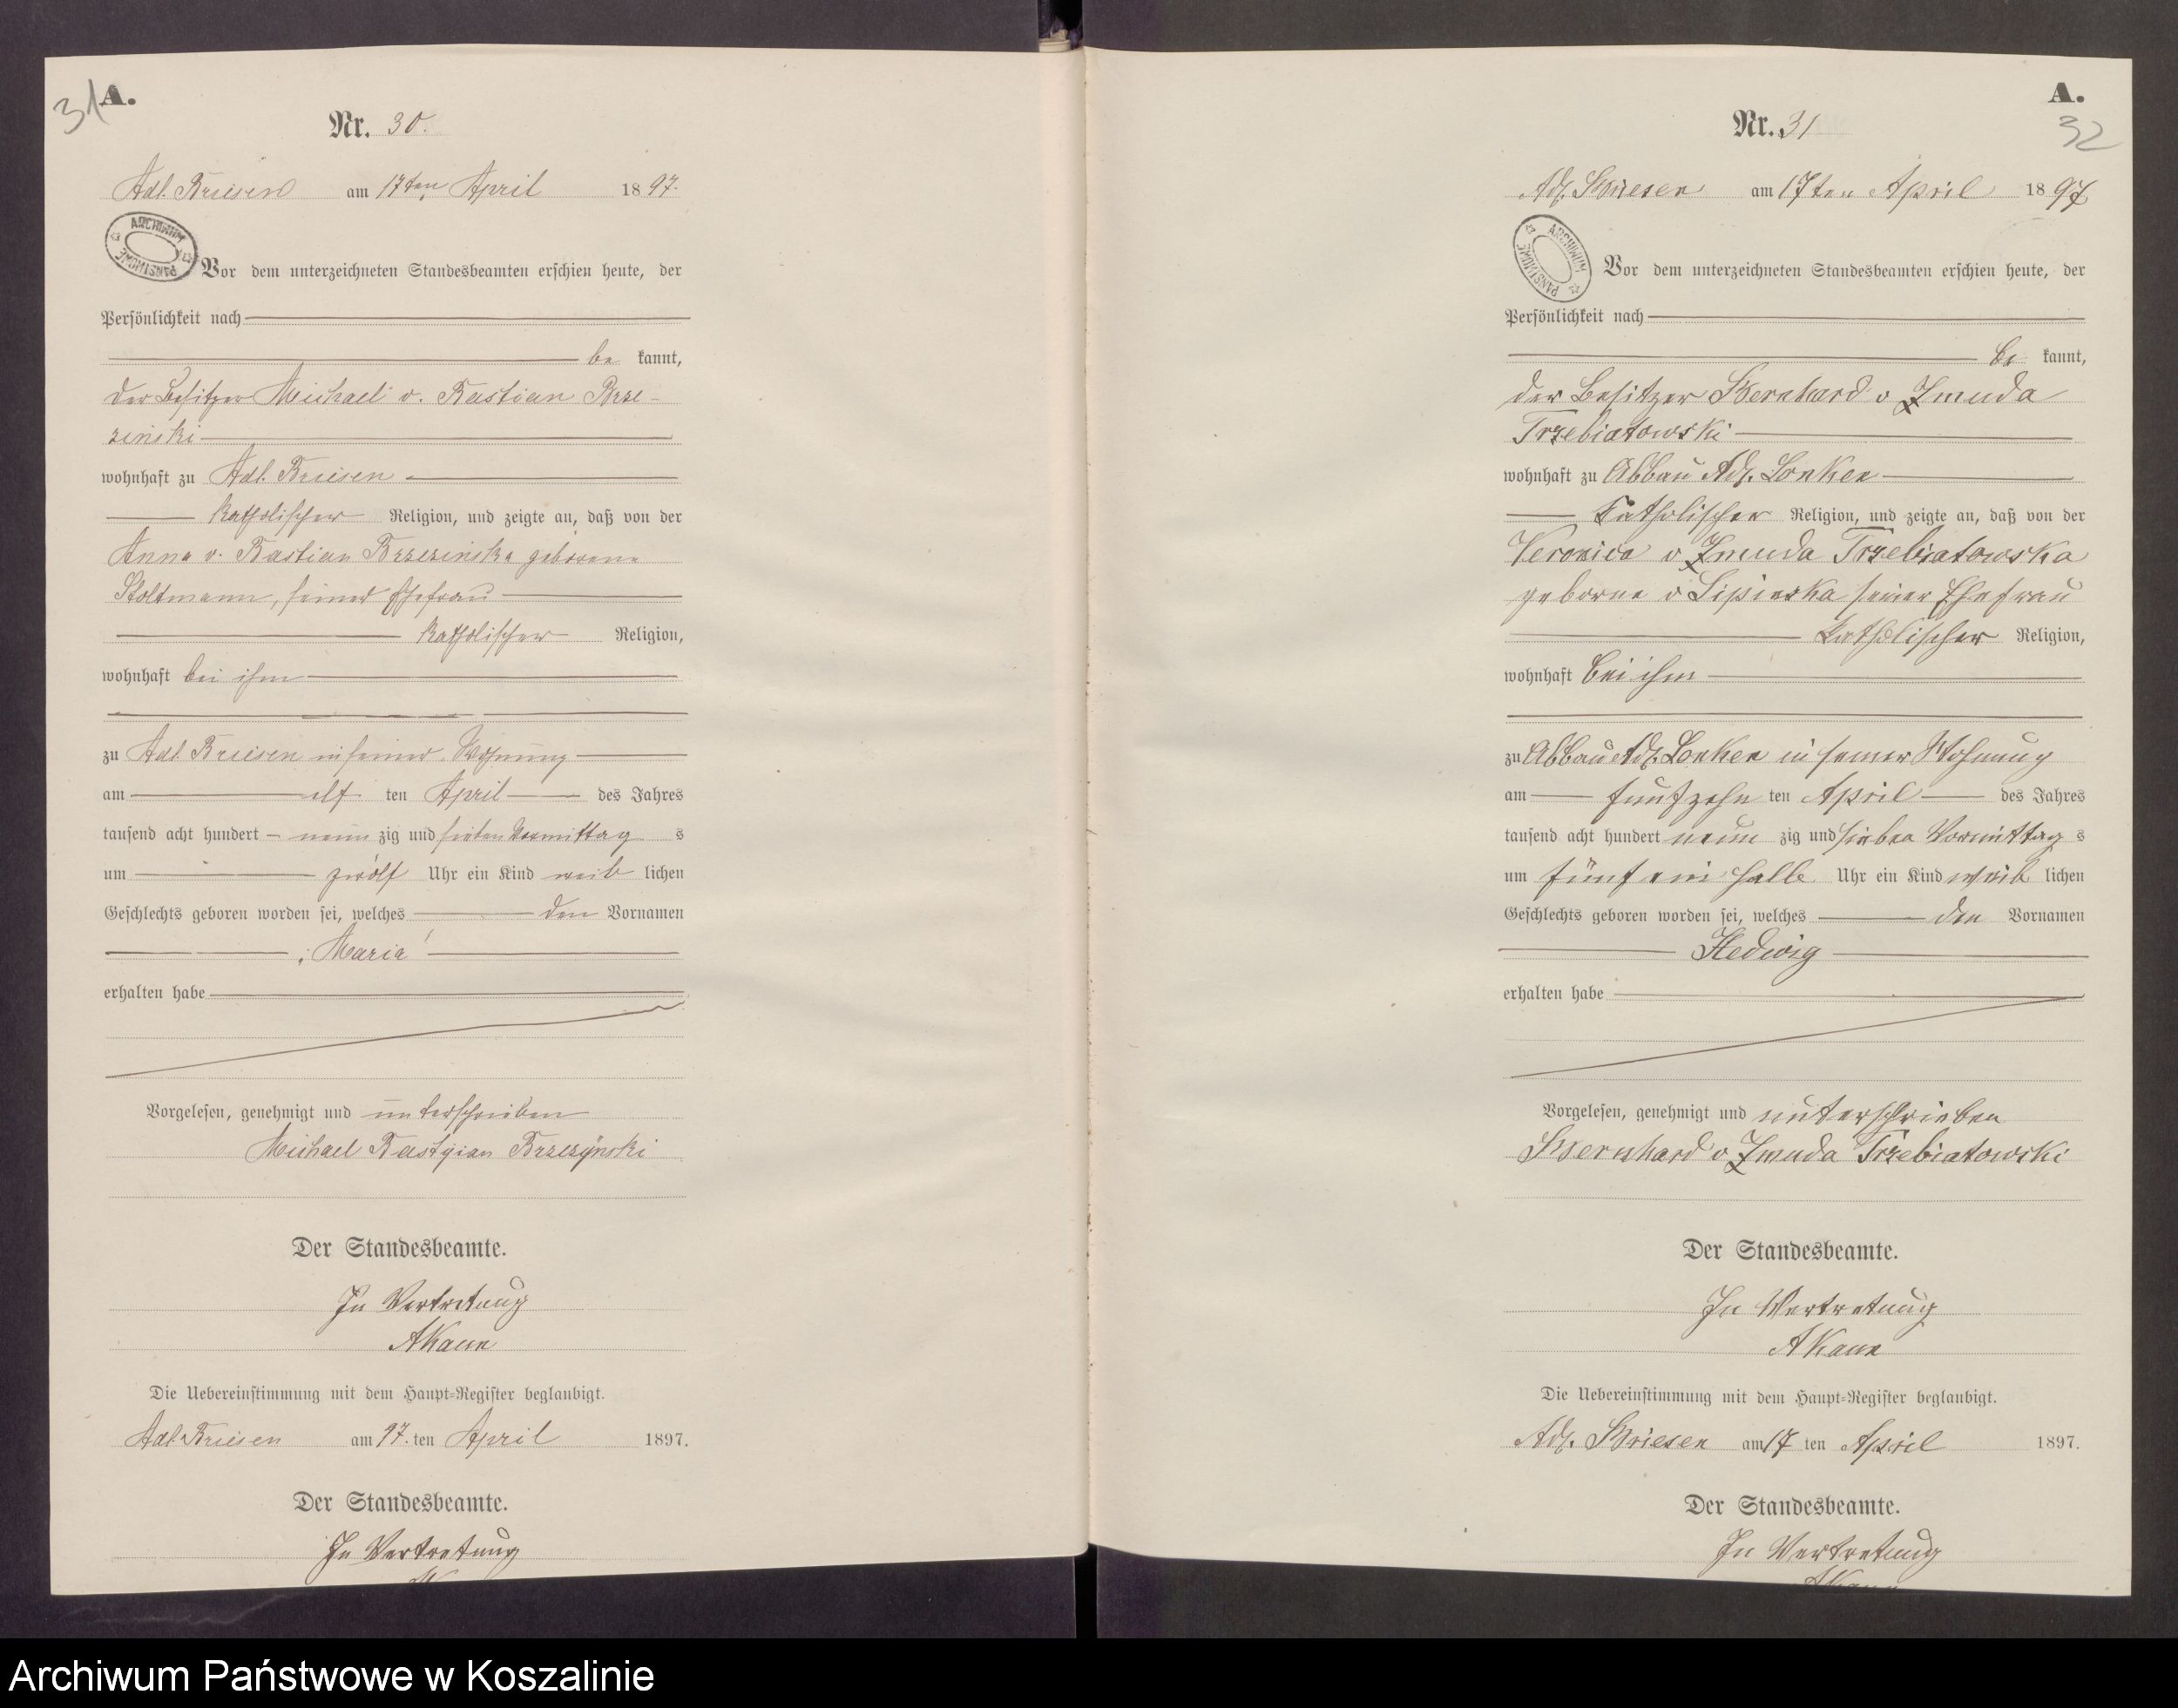 31
A.
Nr. 30.
Adl. Briesen am 17ten April 1897.
ARCHIWUM PAŃSTWOWE
Vor dem unterzeichneten Standesbeamten erschien heute, der
Persönlichkeit nach
be kannt,
der Besitzer Michael v. Bastian Brze-
zinski
wohnhaft zu Adl. Briesen
katholischer Religion, und zeigte an, daß von der
Anna v. Bastian Brzezinska geborene
Stoltmann, seiner Ehefrau
katholischer Religion,
wohnhaft bei ihm
zu Adl. Briesen in seiner Wohnung
am elf ten April des Jahres
tausend acht hundert neun zig und sieben Vormittag s
um zwölf Uhr ein Kind weib lichen
Geschlechts geboren worden sei, welches den Vornamen
„Maria"
erhalten habe
Vorgelesen, genehmigt und unterschrieben
Michael Bastyian Brzezynski
Der Standesbeamte.
In Vertretung
AKann
Die Uebereinstimmung mit dem Haupt-Register beglaubigt.
Adl. Briesen am 17. ten April 1897.
Der Standesbeamte.
In Vertretung
A.
32
Nr. 31
Adl. Briesen am 17ten April 1897
ARCHIWUM PAŃSTWOWE
Vor dem unterzeichneten Standesbeamten erschien heute, der
Persönlichkeit nach
be kannt,
der Besitzer Bernhard v Zmuda
Trzebiatowski
wohnhaft zu Abbau Adl. Lonken
Katholischer Religion, und zeigte an, daß von der
Veronica v Zmuda Trzebiatowska
geborne v Lipinska seiner Ehefrau
Katholischer Religion,
wohnhaft bei ihm
zu Abbau Adl. Lonken in seiner Wohnung
am funfzehn ten April des Jahres
tausend acht hundert neun zig und sieben Vormittag s
um fünf ein halb Uhr ein Kind weib lichen
Geschlechts geboren worden sei, welches den Vornamen
Hedwig
erhalten habe
Vorgelesen, genehmigt und unterschrieben
Bernhard v Zmuda Trzebiatowski
Der Standesbeamte.
In Vertretung
AKann
Die Uebereinstimmung mit dem Haupt-Register beglaubigt.
Adl. Briesen am 17 ten April 1897.
Der Standesbeamte.
In Vertretung
AKann
Archiwum Państwowe w Koszalinie